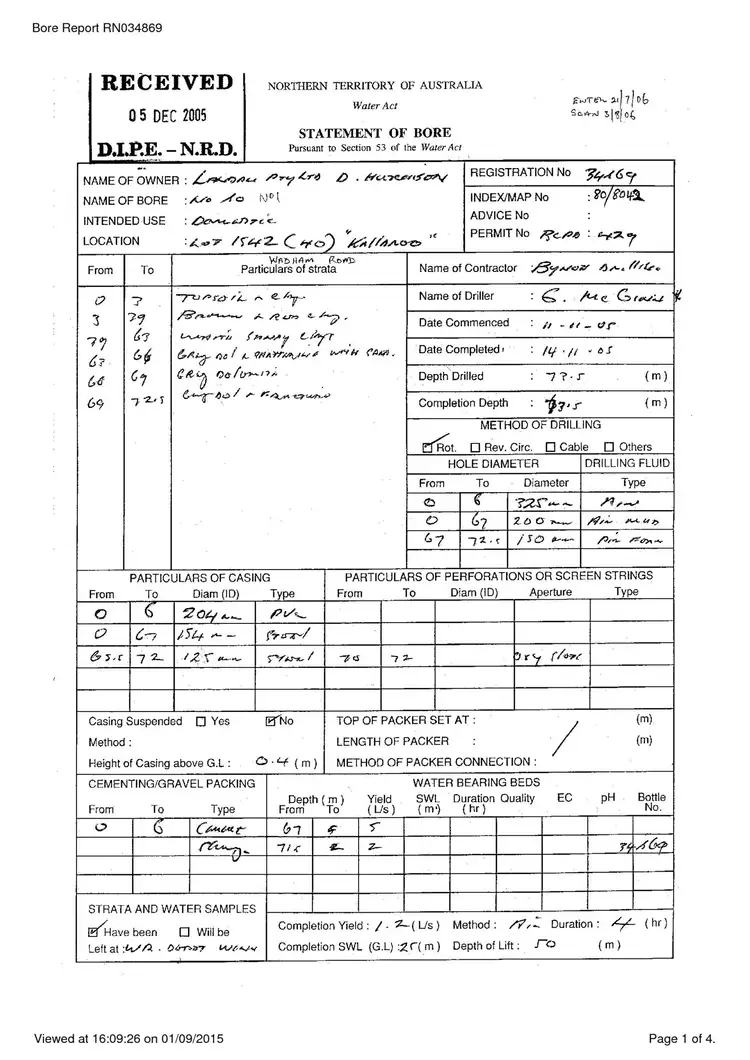 Bore Report RN034869
RECEIVED
05 DEC 2005
D.I.P.E. – N.R.D.
NORTHERN TERRITORY OF AUSTRALIA
Water Act
STATEMENT OF BORE
Pursuant to Section 53 of the Water Act
ENTER 21/7/06
SCAN 3/8/06
NAME OF OWNER : PTY LTD D. HUTCHISON
NAME OF BORE : No 10 No1
INTENDED USE : DOMESTIC
LOCATION : LOT 1542 (40) "KALLAROO"
WADHAM ROAD
REGISTRATION No 34869
INDEX/MAP No : 80/8042
ADVICE No :
PERMIT No : 429
From To Particulars of strata
0 3 TOPSOIL & Clay
3 39 BROWN & RED Clay.
39 63 SANDY CLAYS
63 66 GREY DOL & WITH SAND.
66 69 GREY DOLOMITE
69 72.5 GREY DOL
Name of Contractor : BYNOE DRILLING
Name of Driller : G. Mc Grath
Date Commenced : 11 - 11 - 05
Date Completed : 14 . 11 - 05
Depth Drilled : 73.5 (m)
Completion Depth : 73.5 (m)
METHOD OF DRILLING
☑ Rot. ☐ Rev. Circ. ☐ Cable ☐ Others
HOLE DIAMETER DRILLING FLUID
From To Diameter Type
0 6 325mm Air
0 67 200mm Air MUD
67 72.5 150mm Air FOAM
PARTICULARS OF CASING
From To Diam (ID) Type
0 6 204mm PVC
0 67 154mm Steel
65.5 72 125mm Steel
PARTICULARS OF PERFORATIONS OR SCREEN STRINGS
From To Diam (ID) Aperture Type
70 72 Oxy Slots
Casing Suspended ☐ Yes ☑ No
Method :
Height of Casing above G.L : 0.4 (m)
TOP OF PACKER SET AT : (m)
LENGTH OF PACKER : / (m)
METHOD OF PACKER CONNECTION :
CEMENTING/GRAVEL PACKING
From To Type
0 6 Cement
Plug.
WATER BEARING BEDS
Depth (m) Yield SWL Duration Quality EC pH Bottle
From To (L/s) (m) (hr) No.
67 5
71.5 2 34869
STRATA AND WATER SAMPLES
☑ Have been ☐ Will be
Left at :
Completion Yield : 1.2 (L/s) Method : Air Duration : 4 (hr)
Completion SWL (G.L) : 25 (m) Depth of Lift : 50 (m)
Viewed at 16:09:26 on 01/09/2015
Page 1 of 4.